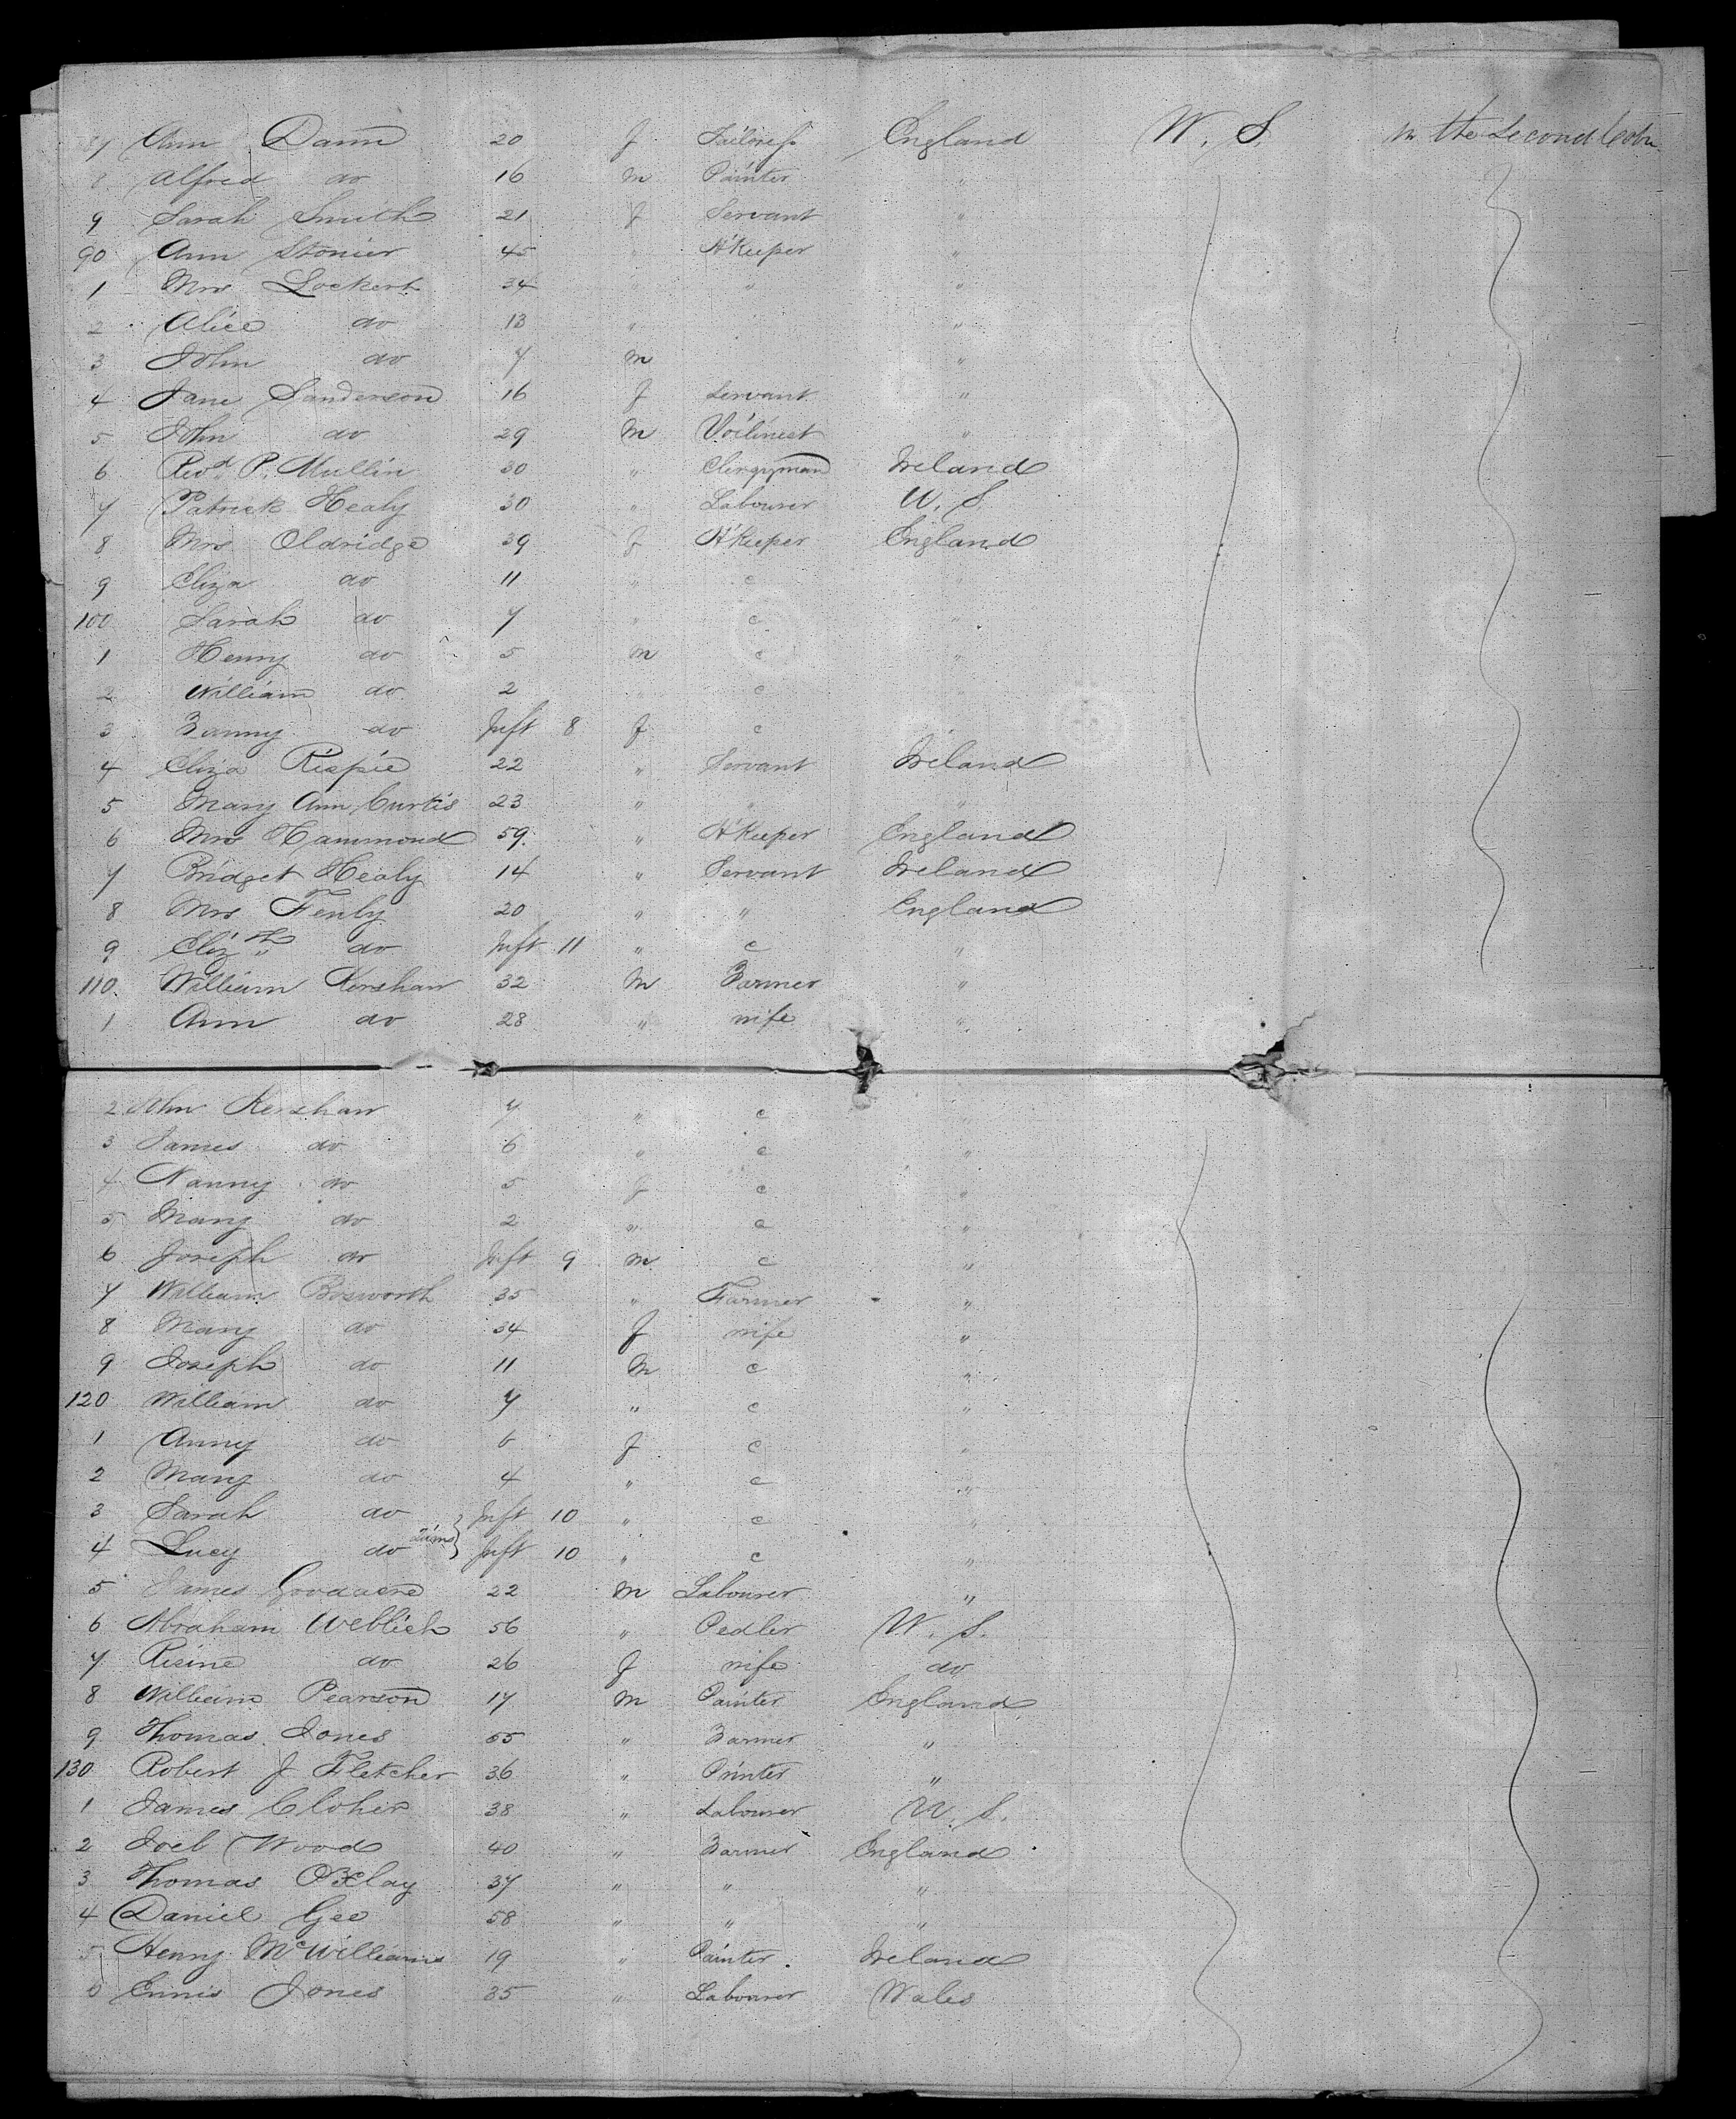 87 Ann Dann 20 f Tailoress England W. S. in the Second Cabn
8 Alfred do 16 m Painter "
9 Sarah Smith 21 f Servant "
90 Ann Stonier 45 " H'Keeper "
1 Mrs Lockert 34 " "
2 Alice do 13 " "
3 John do 7 m "
4 Jane Sanderson 16 f Servant "
5 John do 29 m Voilinest "
6 Revd P. Mullin 30 " Clergyman Ireland
7 Patrick Healy 30 " Labourer U. S.
8 Mrs Oldridge 39 f H'Keeper England
9 Eliza do 11 " c "
100 Sarah do 7 " c "
1 Henry do 5 m c "
2 William do 2 c "
3 Fanny do Inft 8 f c
4 Eliza Rispie 22 " Servant Ireland
5 Mary Ann Curtis 23 " " "
6 Mrs Hammond 59 " H'Keeper England
7 Bridget Healy 14 " Servant Ireland
8 Mrs Fenby 20 " " England
9 Elizth do Inft 11 " c "
110. William Kershaw 32 m Farmer "
1 Ann do 28 " wife "
2 John Kershaw 7 " c "
3 James do 6 " c "
4 Nanny do 5 f c "
5 Mary do 2 " c "
6 Joseph do Inft 9 m c "
7 William Bosworth 35 " Farmer "
8 Mary do 34 f wife "
9 Joseph do 11 m c "
120 William do 7 " c "
1 Anny do 6 f c "
2 Mary do 4 " c "
3 Sarah do Inft 10 " c "
4 Lucy do Twins Inft 10 " c "
5 James Goodacre 22 m Labourer "
6 Abraham Weblich 56 " Pedler U. S.
7 Risine do 26 f wife do
8 William Pearson 17 m Painter England
9 Thomas Jones 55 " Farmer "
130 Robert J Fletcher 36 " Printer "
1 James Cloher 38 " Labourer U. S.
2 Joel Wood 40 " Farmer England
3 Thomas Oxlay 37 " " "
4 Daniel Gee 58 " " "
5 Henry McWilliams 19 " Painter Ireland
6 Ennis Jones 35 " Labourer Wales